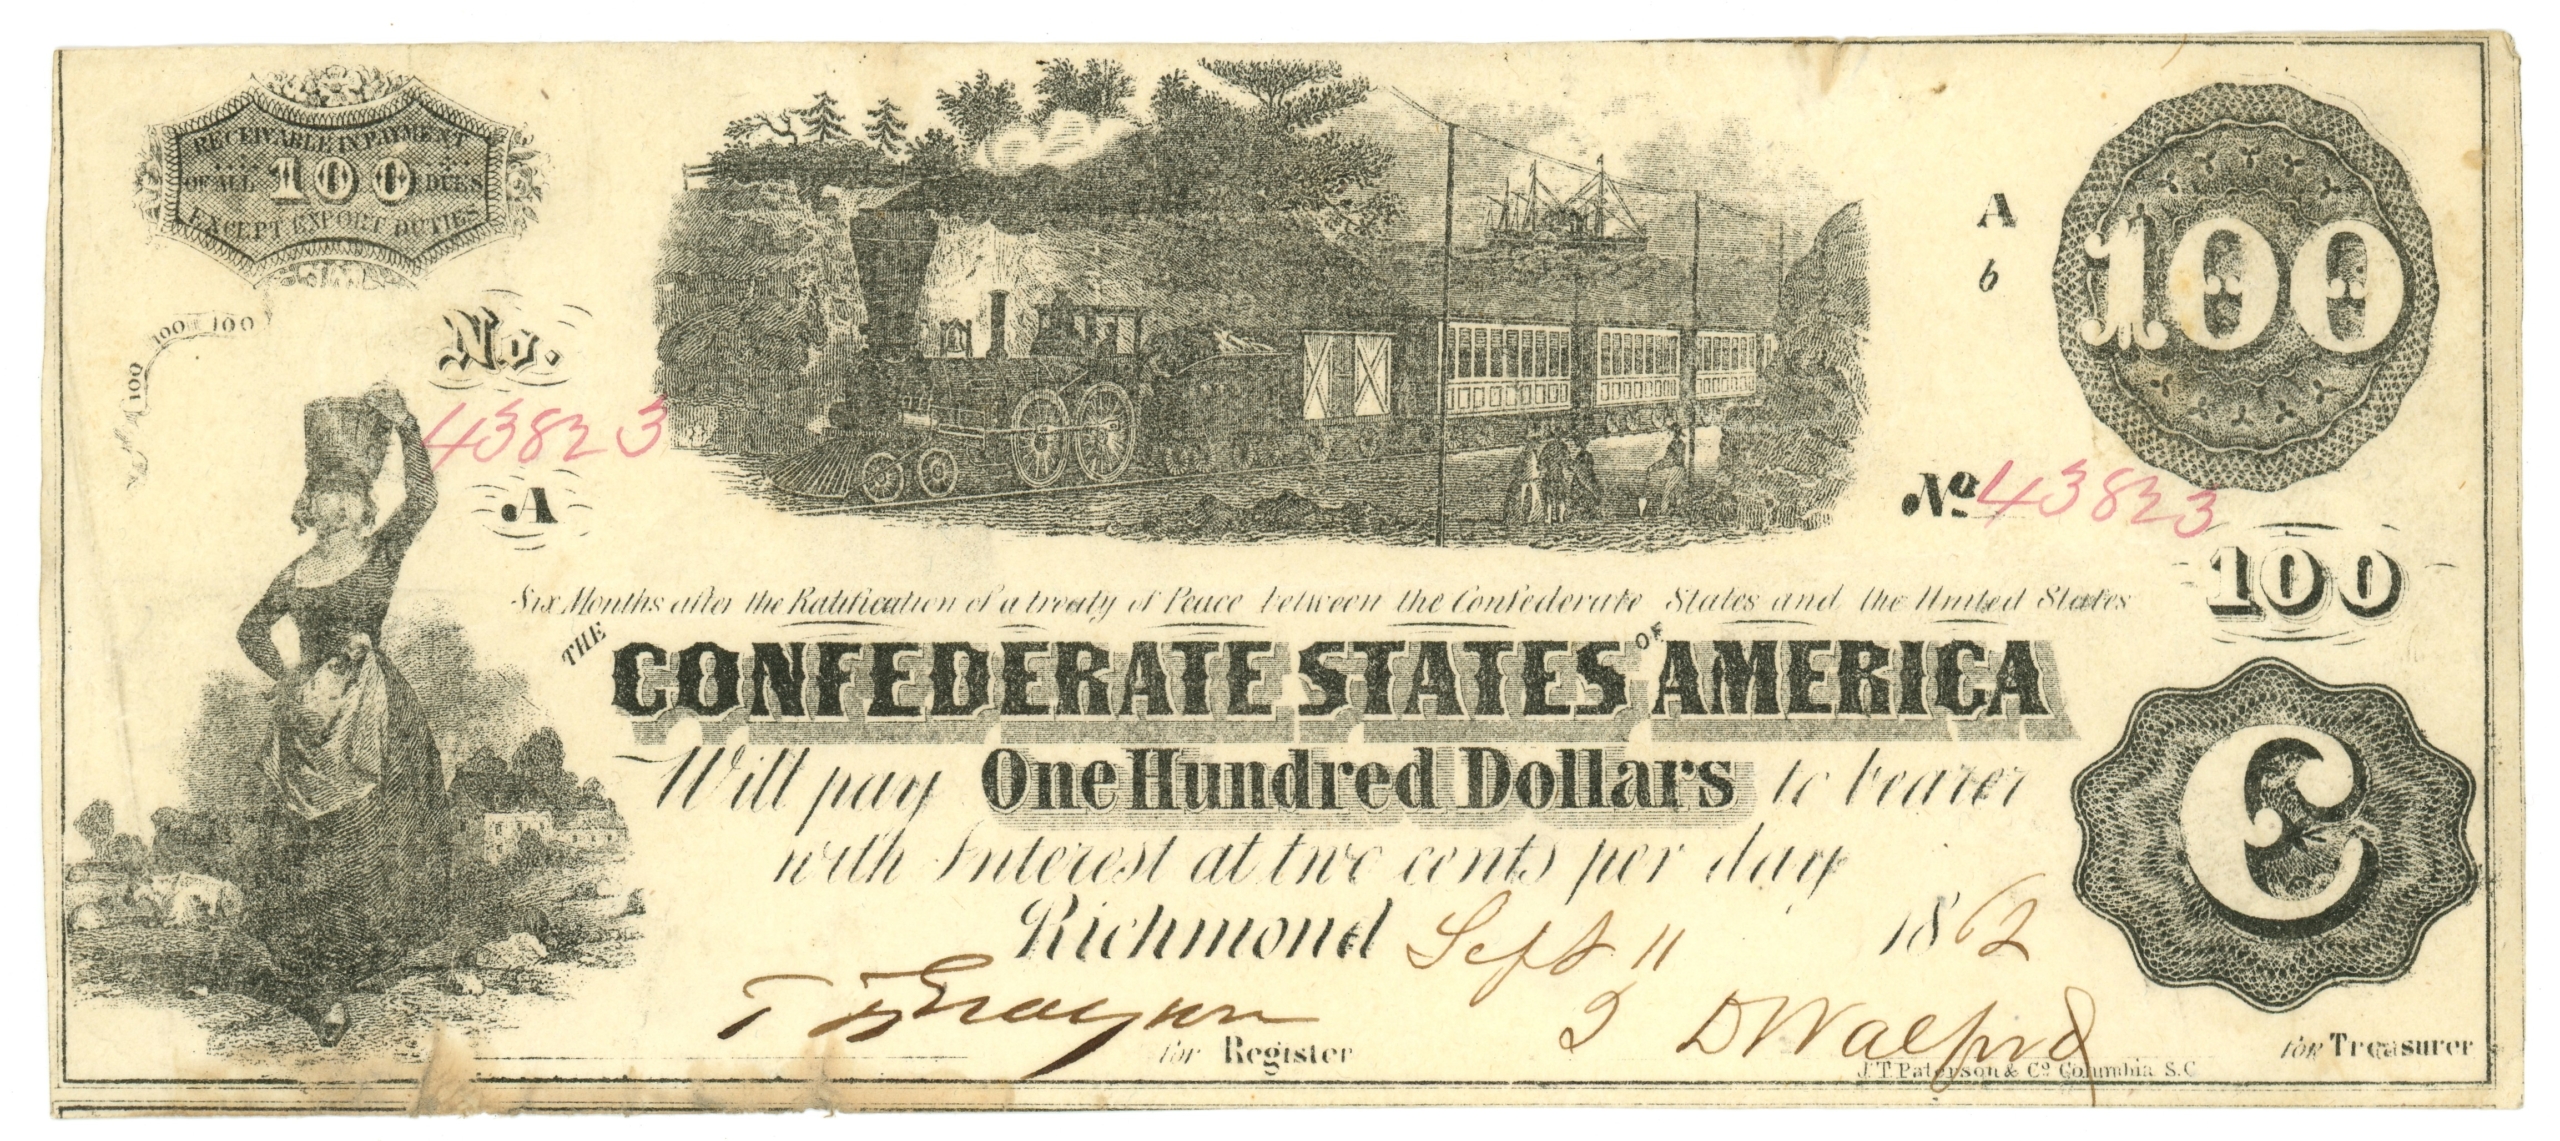 RECEIVABLE IN PAYMENT
OF ALL 100 DUES
EXCEPT EXPORT DUTIES
100 100 100
No.
43823
A
A
6
100
No 43823
100
Six Months after the Ratification of a treaty of Peace between the Confederate States and the United States
THE CONFEDERATE STATES OF AMERICA
Will pay One Hundred Dollars to bearer
with Interest at two cents per day
C
Richmond Sept 11 1862
for Register
D W Walford
for Treasurer
J.T. Paterson & Co Columbia S.C